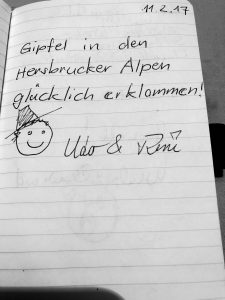 11.2.17
Gipfel in den
Hersbrucker Alpen
glücklich erklommen!
Udo & René